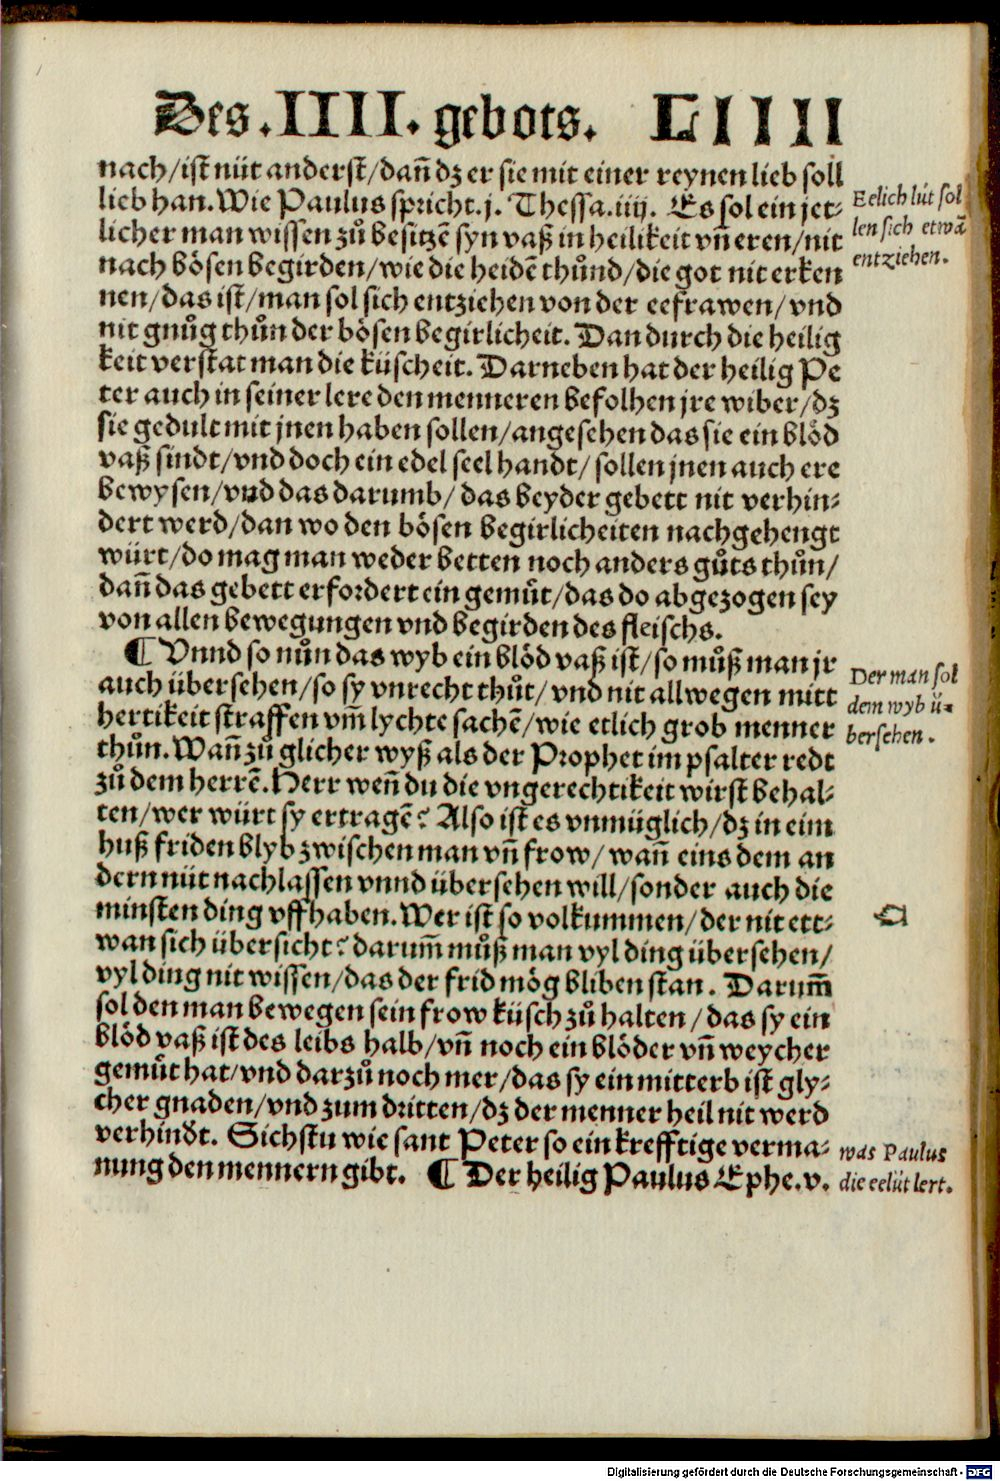 Des .IIII. gebots. LIIII
nach/ist nüt anderst/dañ dz er sie mit einer reynen lieb soll
lieb han. Wie Paulus spricht .j. Thessa .iiij. Es sol ein jet⸗
licher man wissen zů besitzē syn vaß in heilikeit vñ eren/nit
nach bösen begirden/wie die heidē thůnd/die got nit erken
nen/das ist/man sol sich entziehen von der eefrawen/vnd
nit gnůg thůn der bösen begirlicheit. Dan durch die heilig
keit verstat man die küscheit. Darneben hat der heilig Pe
ter auch in seiner lere den menneren befolhen jre wiber/dz
sie gedult mit jnen haben sollen/angesehen das sie ein blöd
vaß sindt/vnd doch ein edel seel handt/sollen jnen auch ere
bewysen/vnd das darumb/das beyder gebett nit verhin⸗
dert werd/dan wo den bösen begirlicheiten nachgehengt
würt/do mag man weder betten noch anders gůts thůn/
dañ das gebett erfordert ein gemůt/das do abgezogen sey
von allen bewegungen vnd begirden des fleischs.
¶ Vnnd so nůn das wyb ein blöd vaß ist/so můß man jr
auch übersehen/so sy vnrecht thůt/vnd nit allwegen mitt
hertikeit straffen vm̄ lychte sachē/wie etlich grob menner
thůn. Wañ zů glicher wyß als der Prophet im psalter redt
zů dem herrē. Herr weñ du die vngerechtikeit wirst behal⸗
ten/wer würt sy ertragē? Also ist es vnmüglich/dz in eim
huß friden blyb zwischen man vñ frow/wañ eins dem an
dern nüt nachlassen vnnd übersehen will/sonder auch die
minsten ding vffhaben. Wer ist so volkummen/der nit ett⸗
wan sich übersicht? darum̄ můß man vyl ding übersehen/
vyl ding nit wissen/das der frid mög bliben stan. Darum̄
sol den man bewegen sein frow küsch zů halten/das sy ein
blöd vaß ist des leibs halb/vñ noch ein blöder vñ weycher
gemůt hat/vnd darzů noch mer/das sy ein mitterb ist gly⸗
cher gnaden/vnd zum dritten/dz der menner heil nit werd
verhindt. Sichstu wie sant Peter so ein krefftige verma⸗
nung den mennern gibt. ¶ Der heilig Paulus Ephe.v.
Eelich lüt sol
len sich etwā
entziehen.
Der man sol
dem wyb ü⸗
bersehen.
was Paulus
die eelüt lert.
Digitalisierung gefördert durch die Deutsche Forschungsgemeinschaft - DFG